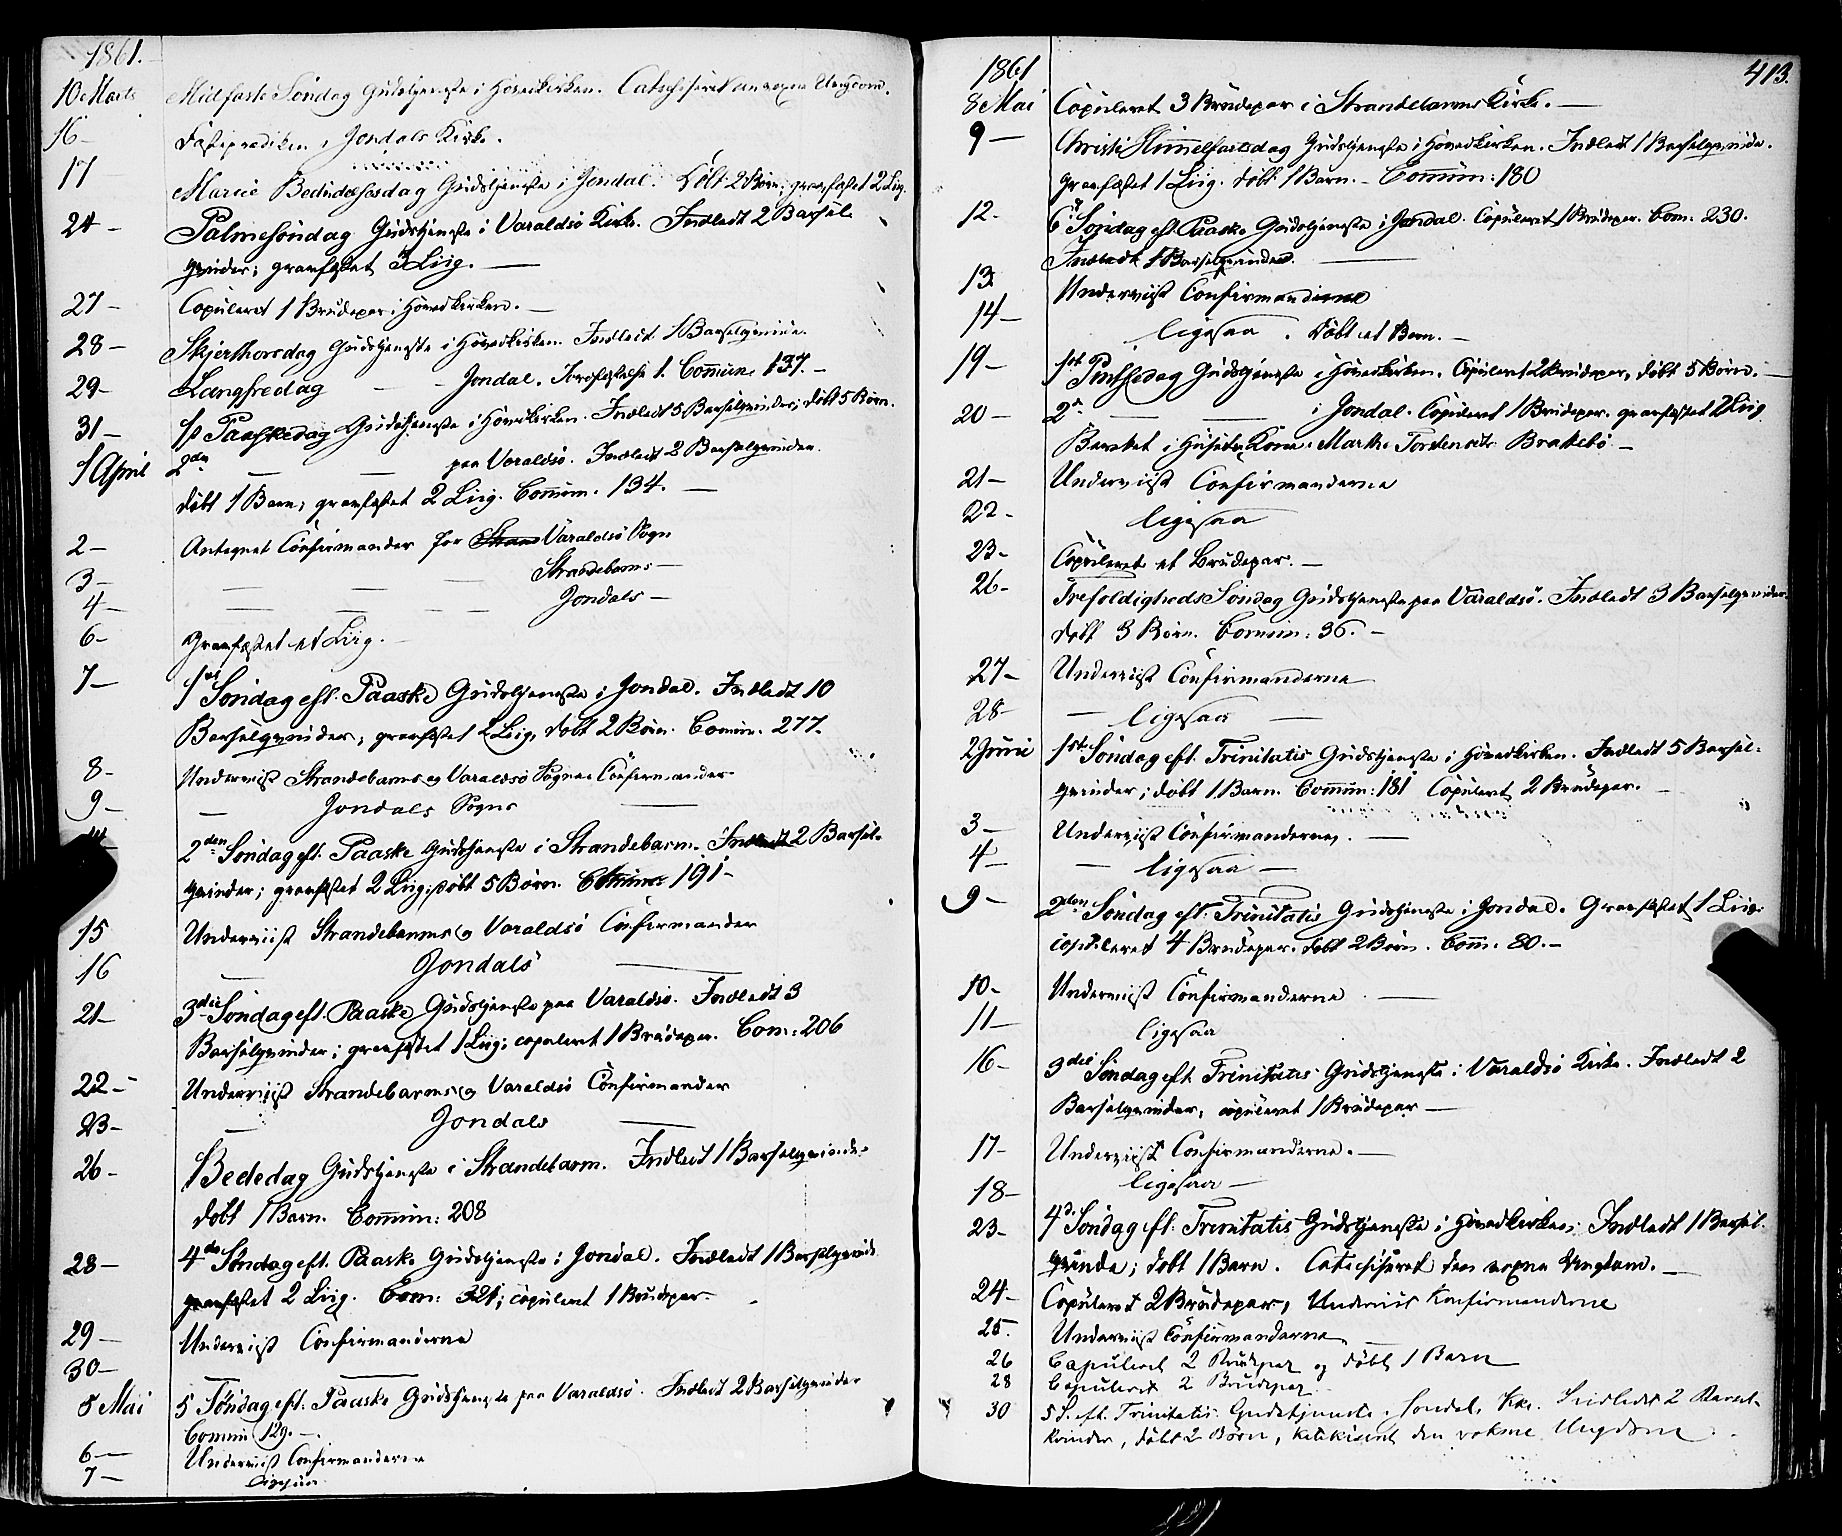 1861.
10 Marts Midfaste Søndag Gudstjeneste i Hovedkirken. Catechiseret den voxne Ungdom.
16 – Fasteprædiken i Jondals Kirke.
17 Mariæ Bebudelsesdag Gudstjeneste i Jondal. Døbt 2 Børn; græsfæstet 2 Liig.
24 – Palmesøndag Gudstjeneste i Varaldsö Kirke. Indledt 2 Barsel-
qvinder; græsfæstet 3 Liig. –
27 – Copuleret 1 Brudepar i Hovedkirken. –
28 – Skjærthorsdag Gudstjeneste i Hovedkirken. Indledt 1 Barselqvinde.
29 – Langfredag – – Jondal. Jordfæstelse 1. Commun. 137. –
31 – 1st Paaskedag Gudstjeneste i Hovedkirken. Indledt 5 Barselqvinder; døbt 5 Børn.
1 April 2den – – paa Varaldsö. Indledt 2 Barselqvinder.
døbt 1 Barn; græsfæstet 2 Liig. Commun. 134. –
2 – Antegnet Confirmander for Varaldsö Sogn
3 – – – – Strandebarms –
4 – – – – Jondals –
6 – Græsfæstet et Liig. –
7 – 1st Søndag eft. Paaske Gudstjeneste i Jondal. Indledt 10
Barselqvinder; græsfæstet 2 Liig, døbt 2 Børn. Commun. 277.
8 – Underviist Strandebarms og Varaldsö Sognes Confirmander
9 – – Jondals Sogns –
14 2den Søndag eft. Paaske Gudstjeneste i Strandebarm. Indledt 2 Barsel-
qvinder; græsfæstet 2 Liig; døbt 5 Børn. Commun: 191 –
15 Underviist Strandebarms og Varaldsö Confirmander
16 – Jondals –
21 – 3die Søndag eft. Paaske Gudstjeneste paa Varaldsö. Indledt 3
Barselqvinder; græsfæstet 1 Liig; copuleret 1 Brudepar. Com: 206
22 – Underviist Strandebarms og Varaldsö Confirmander
23 – – Jondals –
26 – Bededag Gudstjeneste i Strandebarm. Indledt 1 Barselqvinde.
døbt 1 Barn. Commun: 208
28 – 4de Søndag eft. Paaske Gudstjeneste i Jondal. Indledt 1 Barselqvinde
græsfæstet 2 Liig. Com: 321; copuleret 1 Brudepar. –
29 – Underviist Confirmanderne
30 – – –
5 Mai 5 Søndag eft. Paaske Gudstjeneste paa Varaldsö. Indledt 2 Barselqvinder
Commun 129. –
6 – Underviist Confirmanderne
7 – ligesaa
1861 413.
8 Mai Copuleret 3 Brudepar i Strandebarms Kirke. –
9 – Christi Himmelfartsdag Gudstjeneste i Hovedkirken. Indledt 1 Barselqvinde.
græsfæstet 1 Liig. døbt 1 Barn. – Commun: 180
12. 6te Søndag eft Paaske Gudstjeneste i Jondal. Copuleret 1 Brudepar. Com: 230.
Indledt 1 Barselqvinde. –
13 Underviist Confirmanderne
14 – ligesaa. døbt et Barn. –
19 – 1st Pintsedag Gudstjeneste i Hovedkirken. Copuleret 2 Brudepar, døbt 5 Børn. –
20 – 2den – i Jondal. Copuleret 1 Brudepar. græsfæstet 2 Liig
Martha Torstensdtr. Brattebö –
21 – Underviist Confirmanderne
22 – ligesaa
23 – Copuleret et Brudepar. –
26 – Trefoldigheds Søndag Gudstjeneste paa Varaldsö. Indledt 3 Barselqvinder
døbt 3 Børn. Commun: 36. –
27 – Underviist Confirmanderne
28 – – ligesaa –
2 Juni 1ste Søndag eft. Trinitatis Gudstjeneste i Hovedkirken. Indledt 5 Barsel-
qvinder; døbt 1 Barn. Commun: 181 Copuleret 2 Brudepar. –
3 – Underviist Confirmanderne. –
4 – – ligesaa –
9 – 2den Søndag eft. Trinitatis Gudstjeneste i Jondal. Græsfæstet 1 Liig.
copuleret 4 Brudepar. døbt 2 Børn. Comm. 80. –
10 – Underviist Confirmanderne –
11 – ligesaa
16 – 3die Søndag eft Trinitatis Gudstjeneste i Varaldsö Kirke. Indledt 2
Barselqvinder, copuleret 1 Brudepar –
17 – Underviist Confirmanderne. –
18 – ligesaa –
23 – 4de Søndag eft. Trinitatis Gudstjeneste i Hovedkirken. Indledt 1 Barsel-
qvinde; døbt 1 Barn. Catechiseret den voxne Ungdom. –
24 – Copuleret 2 Brudepar, Underviist Konfirmanderne
25. Underviist Confirmanderne
26 Copuleret 2 Brudepar og døbt 1 Barn
28 Copuleret 2 Brudepar
30 5 S. eft. Trinitatis. Gudstjeneste i Jondal. Kke. Indledet 2 Barsel-
kvinder, døbt 2 Börn, katekiseret den voksne Ungdom.